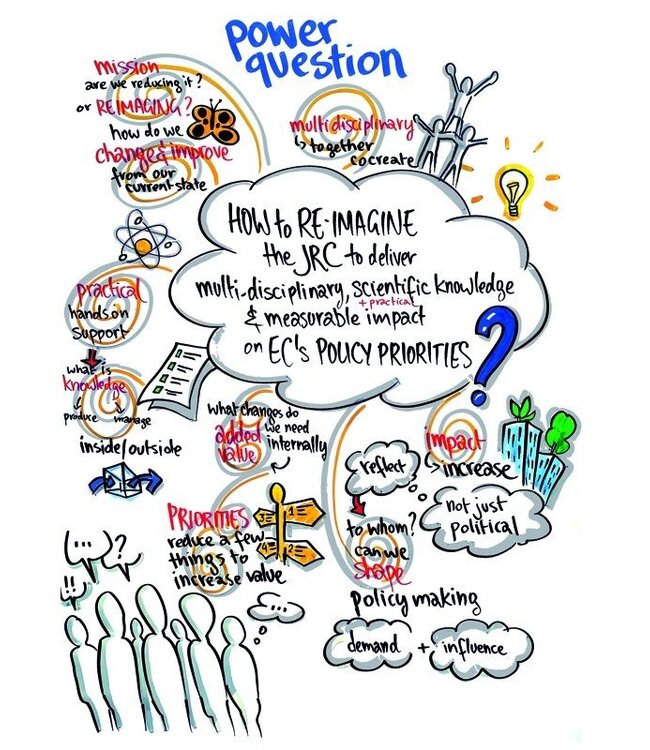 power
question
mission
are we reducing it?
or REIMAGING?
how do we
change & improve
from our
current state
multidisciplinary
together
cocreate
HOW to RE-IMAGINE
the JRC to deliver
multi-disciplinary, scientific knowledge
+ practical
& measurable impact
on EC's POLICY PRIORITIES
?
practical
hands on
support
what is
knowledge
produce manage
inside/outside
what changes do
we need
added
value
internally
impact
increase
not just
political
reflect
to whom?
can we
shape
policy making
demand + influence
PRIORITIES
reduce a few
things to
increase value
3 1
4 2
... ?
!!
...